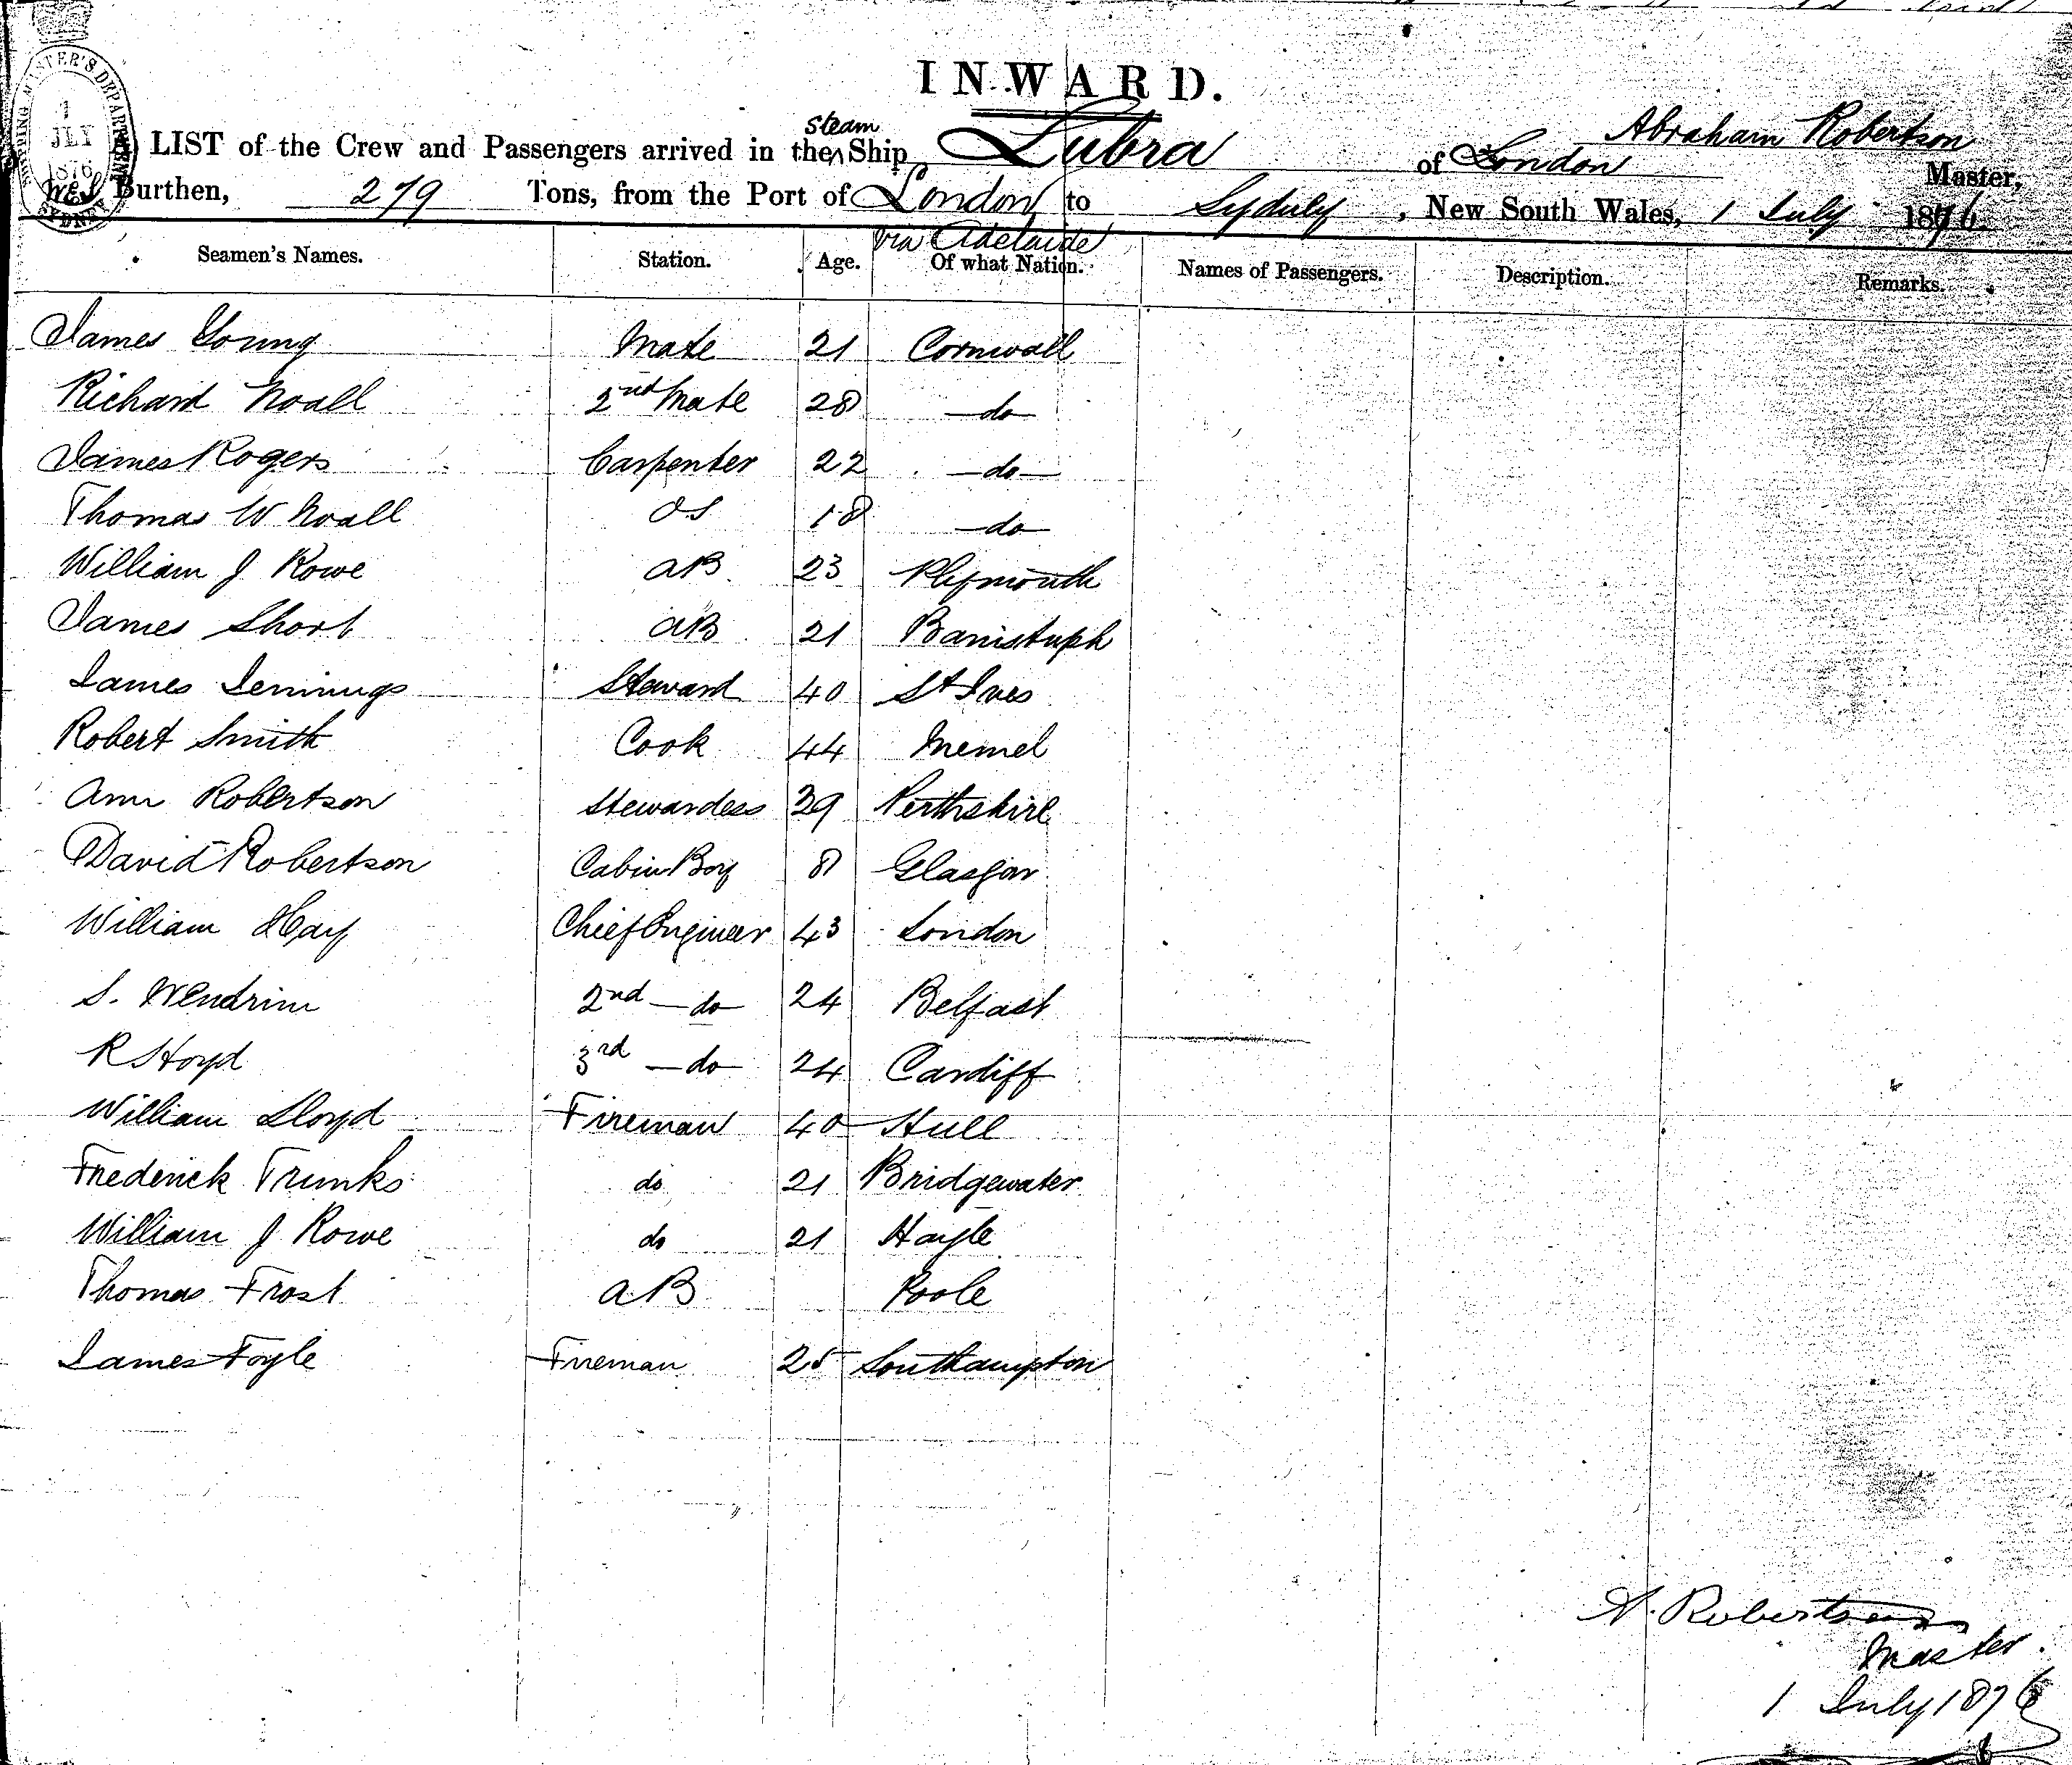 INWARD.
SHIPPING MASTER'S DEPARTMENT
1
JLY
1876
SYDNEY
LIST of the Crew and Passengers arrived in the Steam Ship Lubra of London Abraham Robertson Master,
Burthen, 279 Tons, from the Port of London to Sydney, New South Wales, 1 July 1876
via Adelaide
Seamen's Names. Station. Age. Of what Nation. Names of Passengers. Description. Remarks.
James Young Mate 21 Cornwall
Richard Noall 2nd Mate 28 -do-
James Rogers Carpenter 22 -do-
Thomas W Noall OS 18 -do-
William J Rowe AB 23 Plymouth
James Short AB 21
James Jennings Steward 40 St Ives
Robert Smith Cook 44 Memel
Ann Robertson Stewardess 39 Perthshire
David Robertson Cabin Boy 8 Glasgow
William Hay Chief Engineer 43 London
S. Wendrim 2nd -do- 24 Belfast
R Lloyd 3rd -do- 24 Cardiff
William Lloyd Fireman 40 Hull
Frederick Trunks do 21 Bridgewater
William J Rowe do 21 Hayle
Thomas Frost AB Poole
James Foyle Fireman 25 Southampton
A. Robertson
Master.
1 July 1876